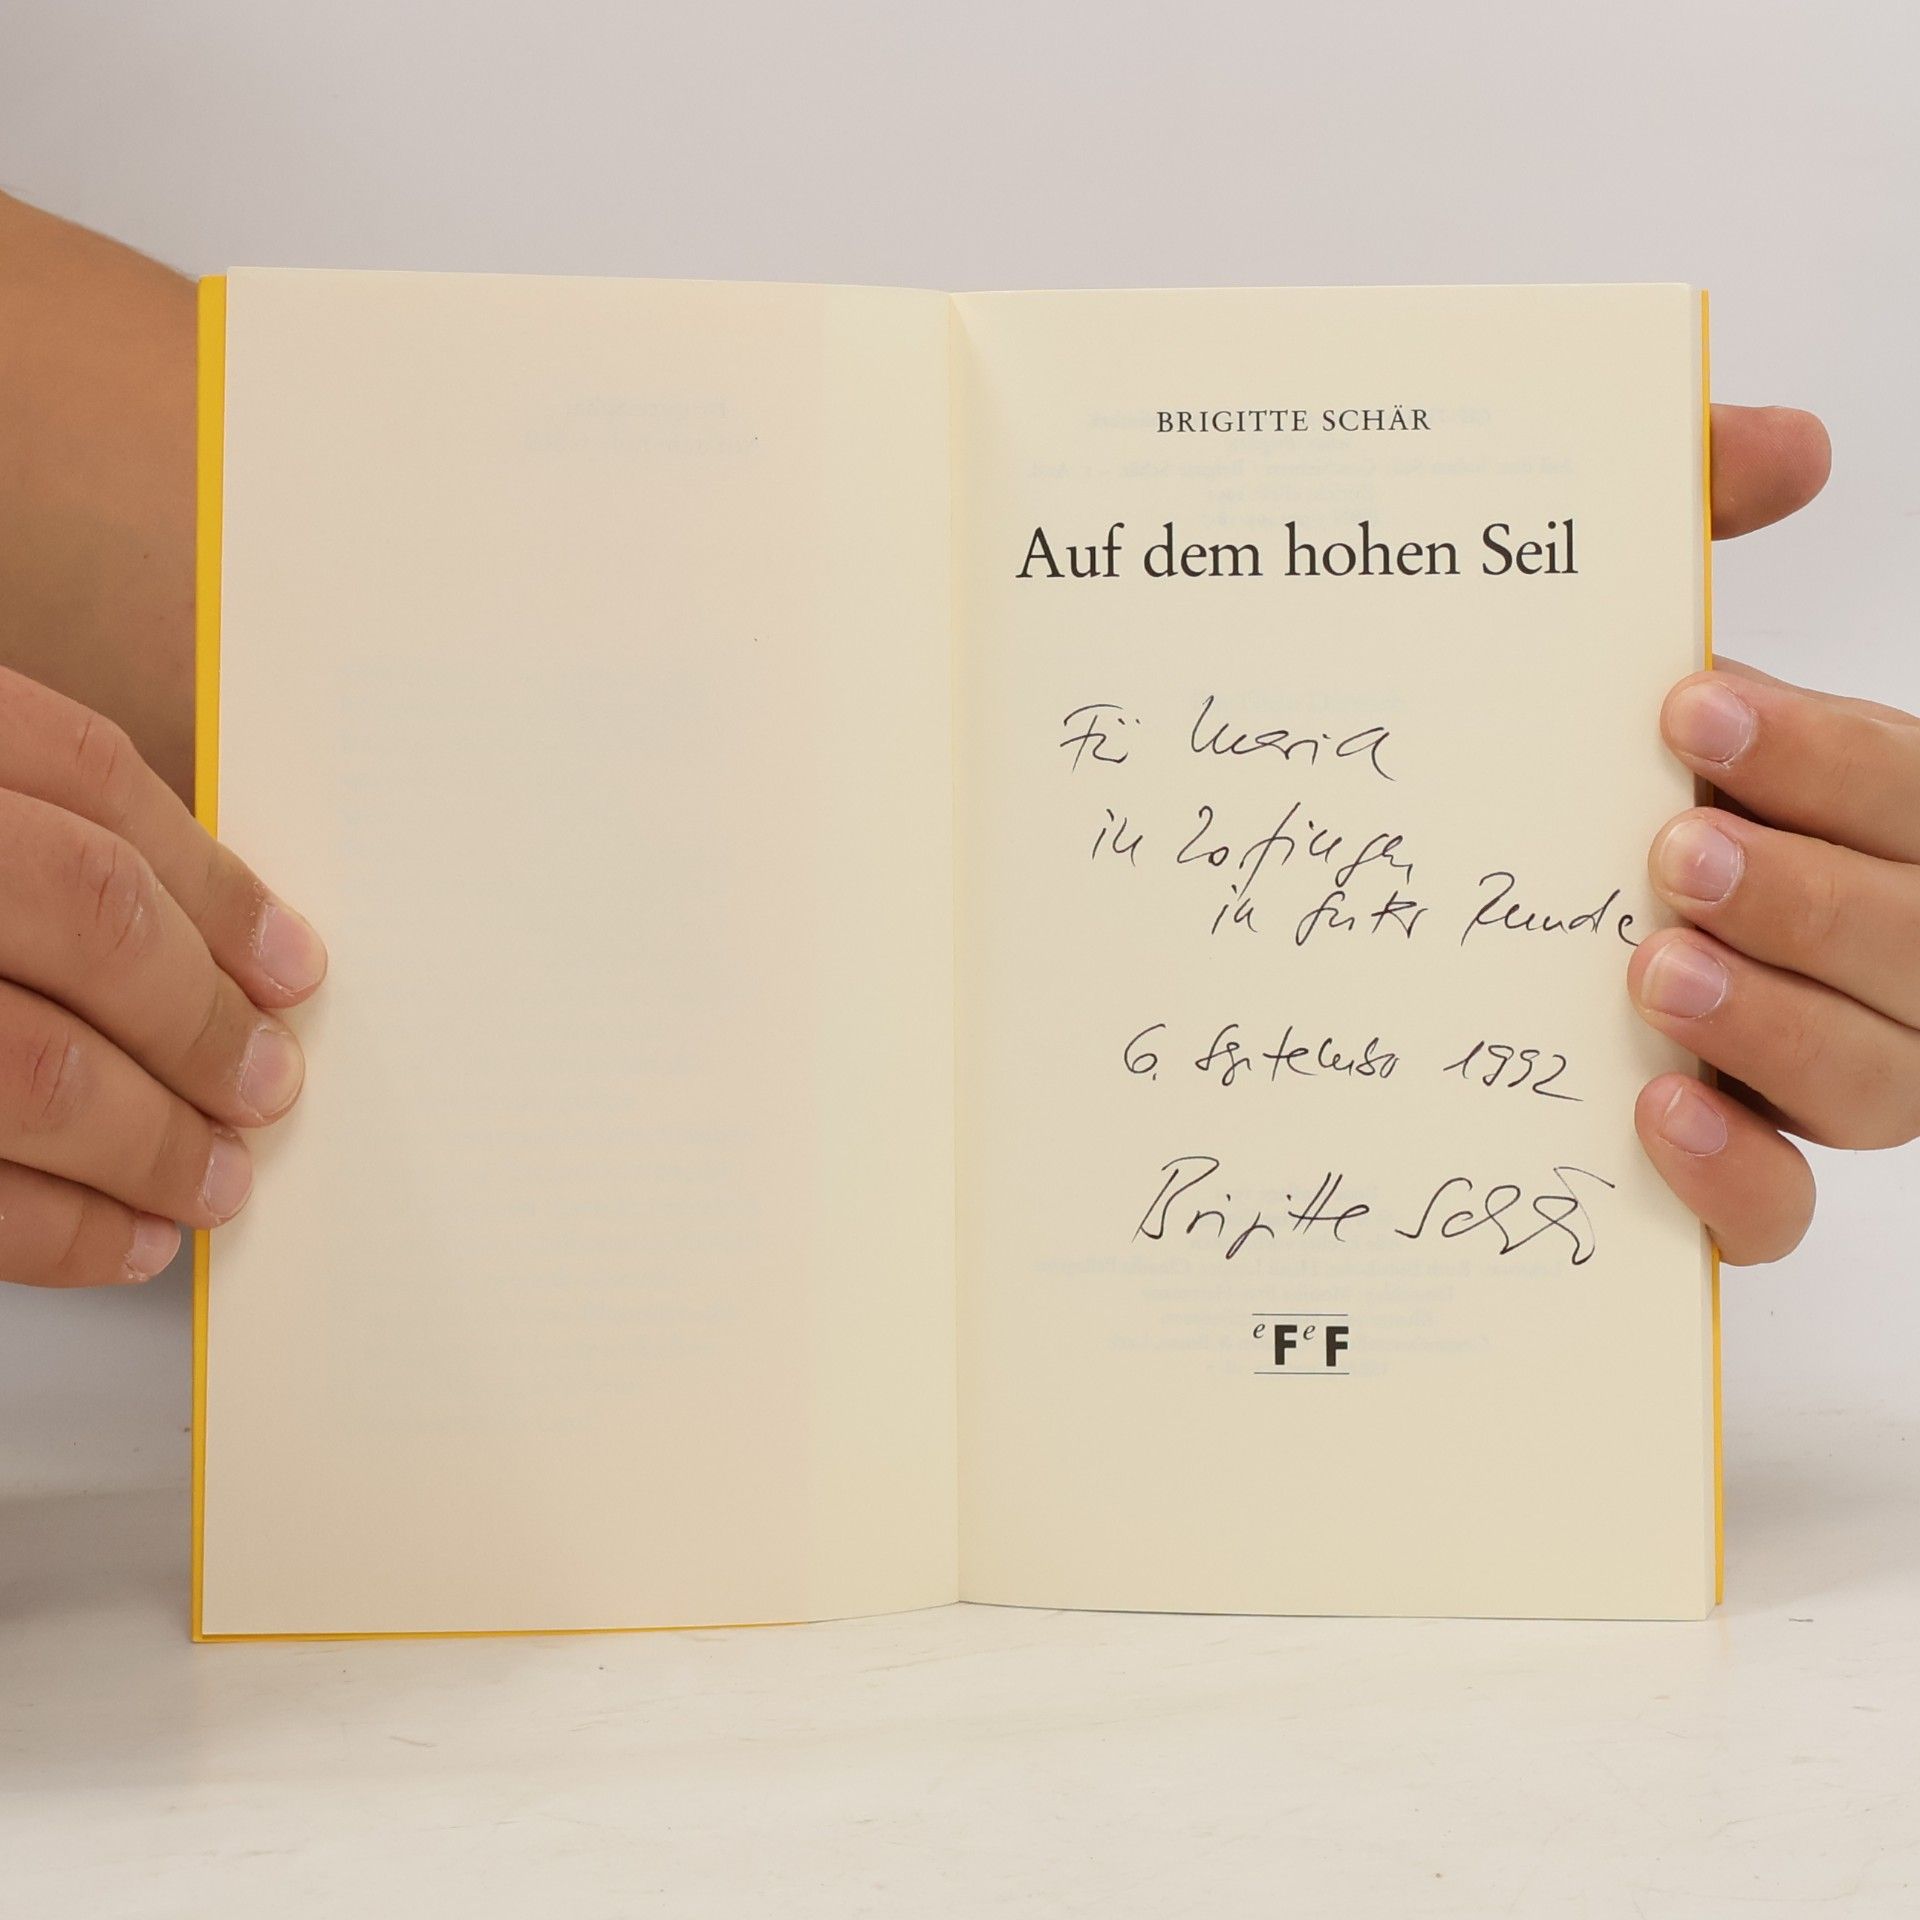 BRIGITTE SCHÄR
Auf dem hohen Seil
Für Maria
in Zofingen
in guter Runde
6. September 1992
Brigitte Schär
eFeF